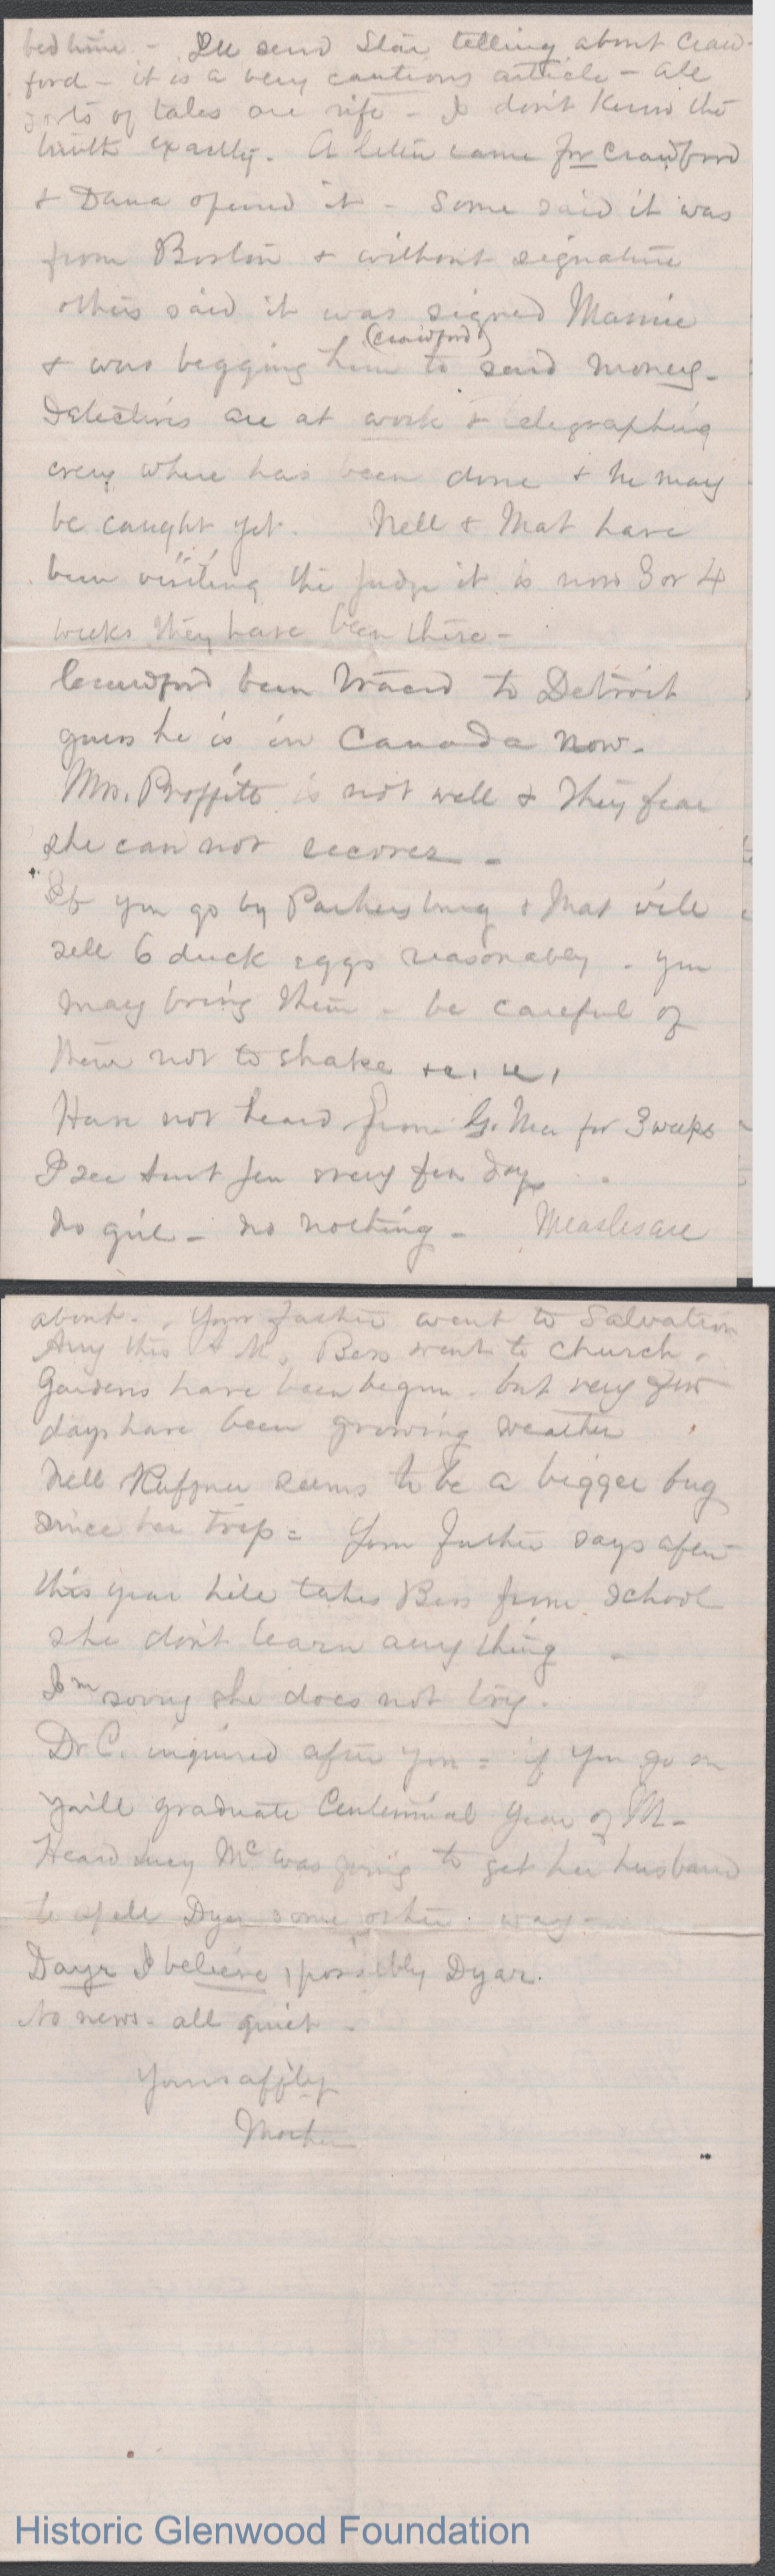 bedtime - I'll send Star telling about Craw-
ford - it is a very cautious article - all
sorts of tales are rife - I don't know the
truth exactly. A letter came for Crawford
& Dana opened it - Some said it was
from Boston & without signature
others said it was signed Mamie
(Crawford)
& was begging him to send money -
Detectives are at work & telegraphing
every where has been done & he may
be caught yet. Nell & Mat have
been "visiting" the Judge it is now 3 or 4
weeks they have been there -
Crawford been traced to Detroit
guess he is in Canada now -
Mrs. Proffitt is not well & they fear
she can not recover -
If you go by Parkersburg & Mat will
sell 6 duck eggs reasonably - you
may bring them - be careful of
them not to shake &c, &c,
Have not heard from G. Ma for 3 weeks
I see Aunt Jen every few days
No girl - no nothing - Measles are
about. Your father went to Salvation
Army this A M, Bess went to church.
Gardens have been begun - but very few
days have been growing weather
Nell Ruffner seems to be a bigger bug
since her trip = Your Father says after
this year he'll take Bess from school
she don't learn any thing -
I'm sorry she does not try.
Dr C. inquired after you = if you go on
you'll graduate Centennial Year of M -
Heard Lucy Mc was going to get her husband
to spell Dyer some other way -
Dayr I believe, possibly Dyar.
No news - all quiet -
Yours affly
Mother
Historic Glenwood Foundation